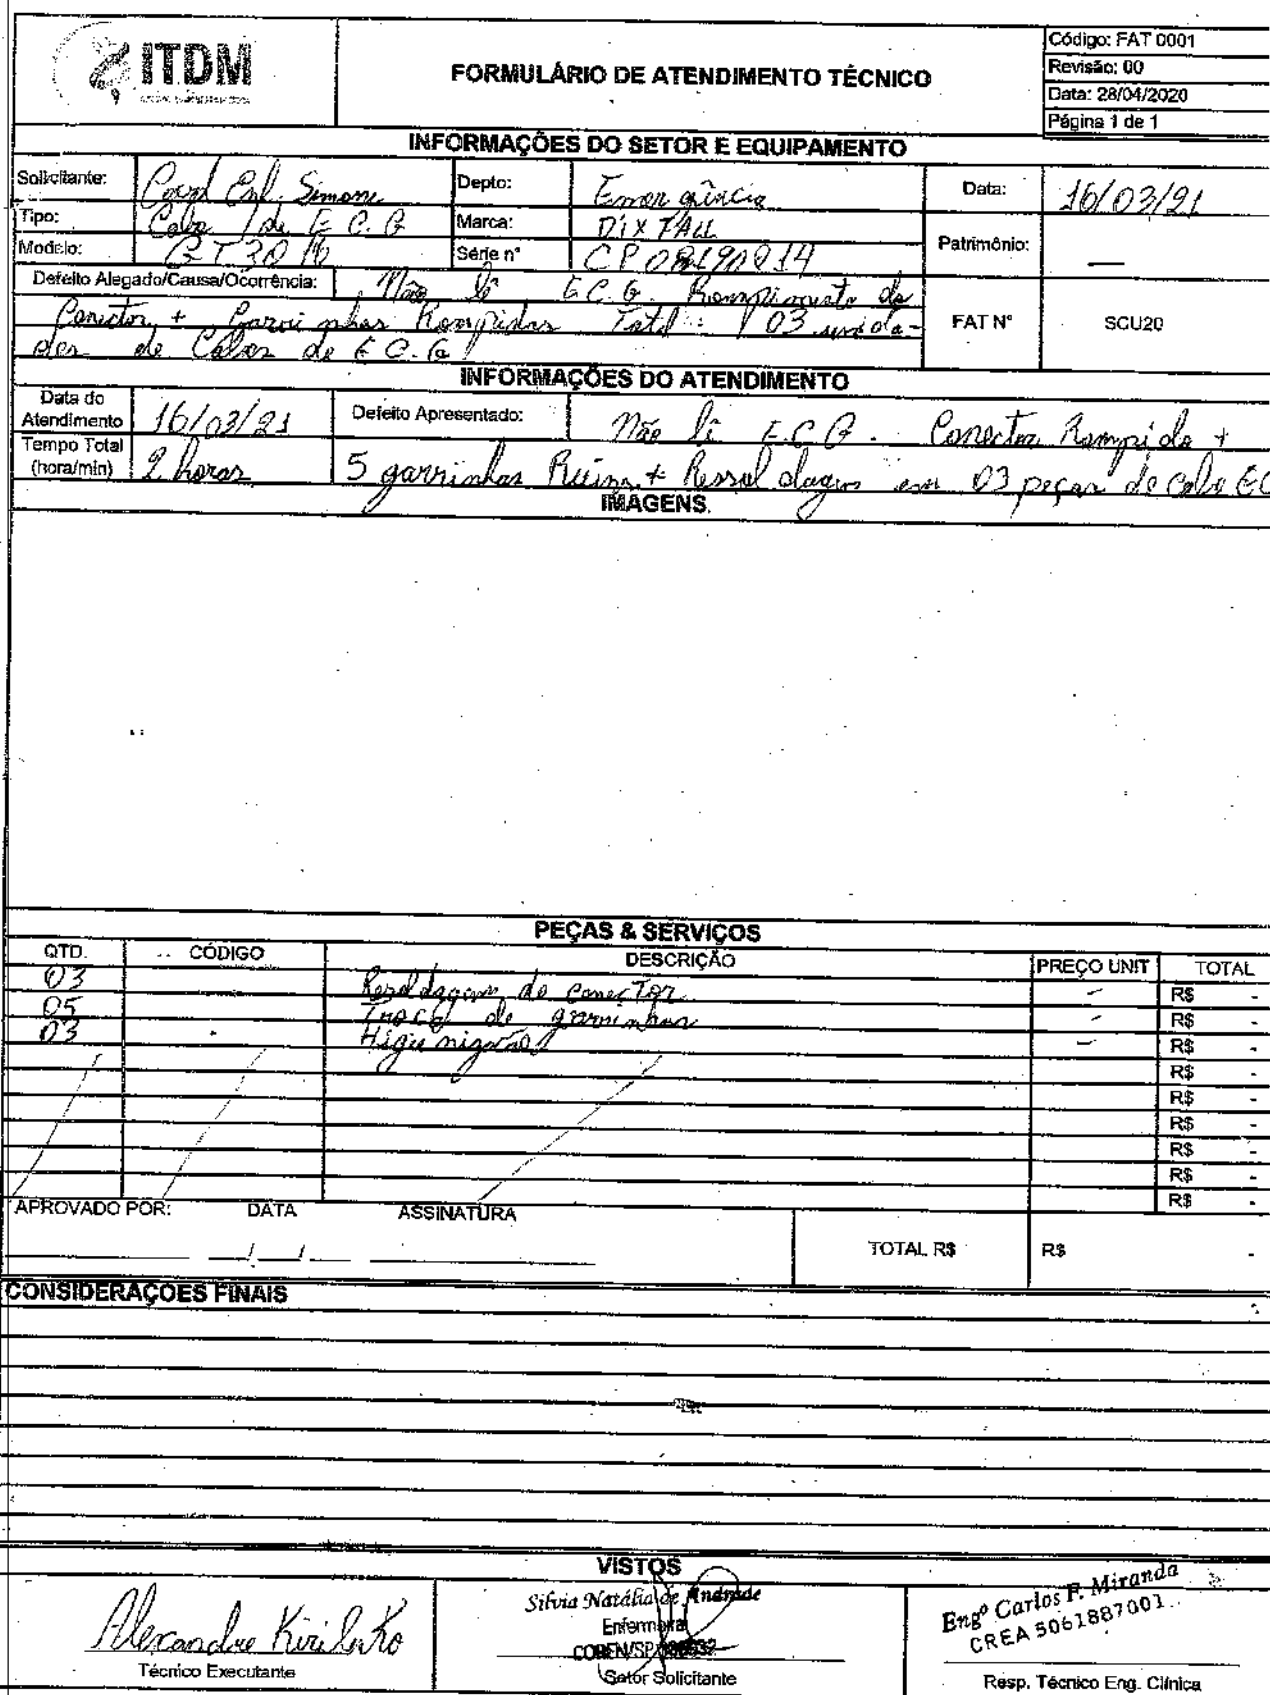 ITDM
FORMULÁRIO DE ATENDIMENTO TÉCNICO
Código: FAT 0001
Revisão: 00
Data: 28/04/2020
Página 1 de 1
INFORMAÇÕES DO SETOR E EQUIPAMENTO
Solicitante: Coord Enf. Simone Depto: Emergência Data: 16/03/21
Tipo: Cabo de E.C.G Marca: DIXTALL
Modelo: Série nº Patrimônio: —
Defeito Alegado/Causa/Ocorrência: Não lê E.C.G. Rompimento do
Conector + Garrinhas Rompidas Total: 03 unida-
des de Cabos de E.C.G
FAT Nº SCU20
INFORMAÇÕES DO ATENDIMENTO
Data do Atendimento 16/03/21 Defeito Apresentado: Não lê E.C.G. Conector Rompido +
Tempo Total (hora/min) 2 horas 5 garrinhas Ruins + Ressoldagem em 03 peças de cabo EC
IMAGENS
PEÇAS & SERVIÇOS
QTD. CÓDIGO DESCRIÇÃO PREÇO UNIT TOTAL
03 Resoldagem do conector - R$ -
05 Troca de garrinhas - R$ -
03 Higienização - R$ -
R$ -
R$ -
R$ -
R$ -
R$ -
R$ -
APROVADO POR: DATA ASSINATURA
__/__/__
TOTAL R$ R$ -
CONSIDERAÇÕES FINAIS
VISTOS
Alexandre Kirilenko
Técnico Executante
Silvia Natália de Andrade
Enfermeira
COREN/SP
Setor Solicitante
Engº Carlos F. Miranda
CREA 5061887001
Resp. Técnico Eng. Clínica